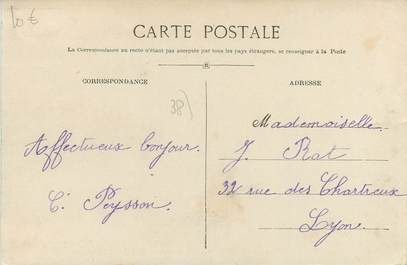 10€
CARTE POSTALE
La Correspondance au recto n'étant pas acceptée par tous les pays étrangers, se renseigner à la Poste
CORRESPONDANCE
ADRESSE
38)
Affectueux bonjour.
C. Peysson.
Mademoiselle
J. Rat
32 rue des Chartreux
Lyon.